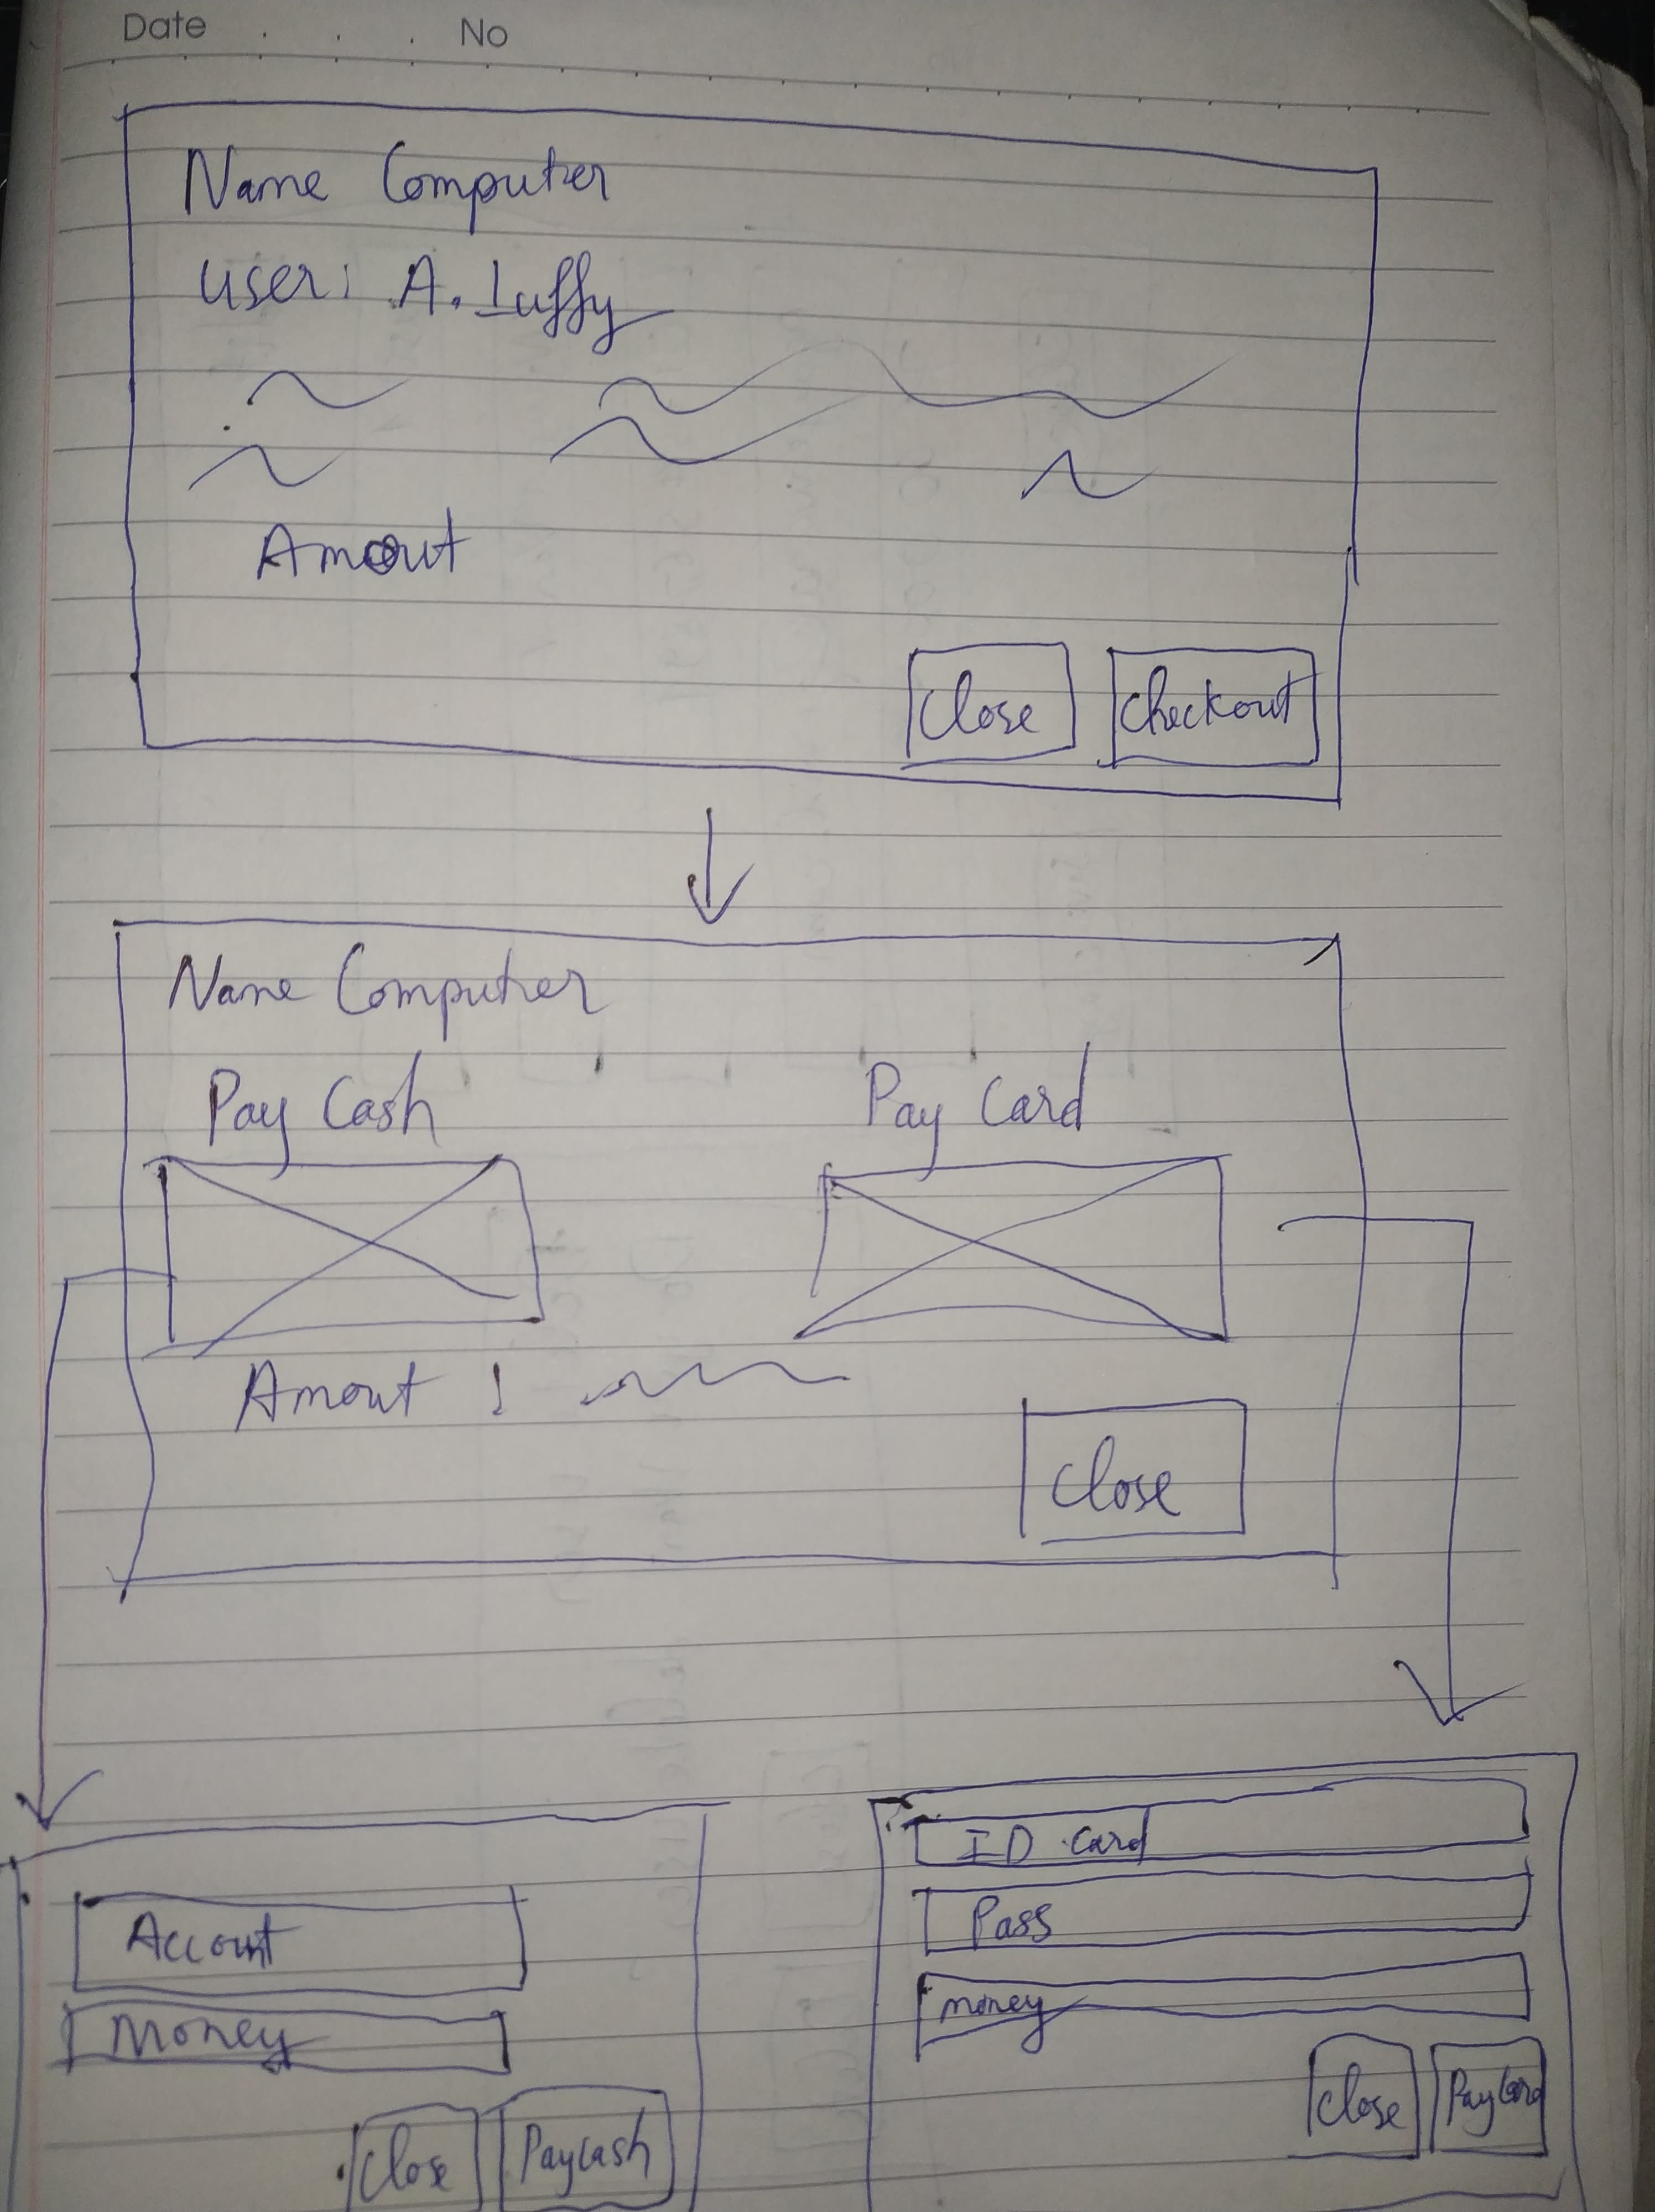 Date No
Name Computer
user: A. Luffy
Amout
Close Checkout
Name Computer
Pay Cash Pay Card
Amout :
Close
ID card
Pass
money
Close Pay Card
Account
Money
Close Paycash